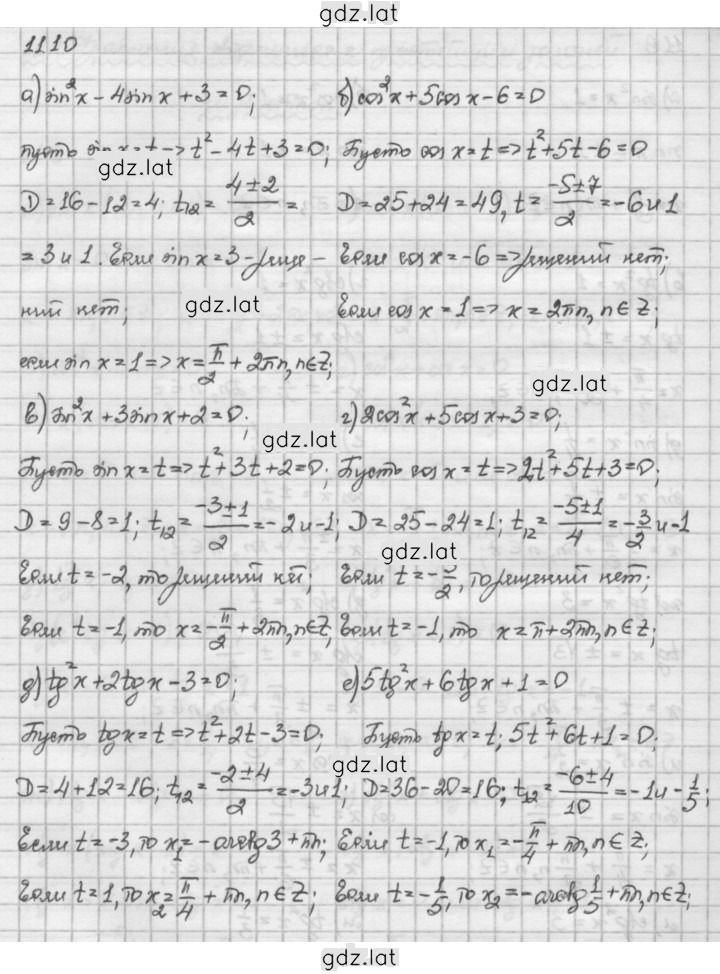 gdz.lat
1110
а) sin²x - 4sin x + 3 = 0;
пусть sin x = t => t² - 4t + 3 = 0;
gdz.lat
D = 16 - 12 = 4; t₁₂ = (4±2)/2 =
= 3 и 1. Если sin x = 3 - реше-
ний нет;
gdz.lat
если sin x = 1 => x = π/2 + 2πn, n∈Z;
б) cos²x + 5cos x - 6 = 0
Пусть cos x = t => t² + 5t - 6 = 0
D = 25 + 24 = 49, t = (-5±7)/2 = -6 и 1
Если cos x = -6 => решений нет;
Если cos x = 1 => x = 2πn, n∈Z;
gdz.lat
в) sin²x + 3sin x + 2 = 0;
gdz.lat
Пусть sin x = t => t² + 3t + 2 = 0;
D = 9 - 8 = 1; t₁₂ = (-3±1)/2 = -2 и -1;
Если t = -2, то решений нет;
Если t = -1, то x = -π/2 + 2πn, n∈Z;
г) 2cos²x + 5cos x + 3 = 0;
Пусть cos x = t => 2t² + 5t + 3 = 0;
D = 25 - 24 = 1; t₁₂ = (-5±1)/4 = -3/2 и -1
gdz.lat
Если t = -3/2, то решений нет;
Если t = -1, то x = π + 2πn, n∈Z;
д) tg²x + 2tg x - 3 = 0;
Пусть tg x = t => t² + 2t - 3 = 0;
D = 4 + 12 = 16; t₁₂ = (-2±4)/2 = -3 и 1;
Если t = -3, то x₁ = -arctg3 + πn;
Если t = 1, то x₂ = π/4 + πn, n∈Z;
е) 5tg²x + 6tg x + 1 = 0
Пусть tg x = t; 5t² + 6t + 1 = 0;
gdz.lat
D = 36 - 20 = 16; t₁₂ = (-6±4)/10 = -1 и -1/5;
Если t = -1, то x₁ = -π/4 + πn, n∈Z;
Если t = -1/5, то x₂ = -arctg 1/5 + πn, n∈Z;
gdz.lat